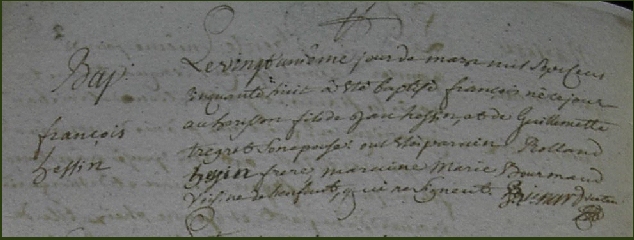 Bap
françois
hessin
Le vingtunième jour de mars mil Sept Cens
cinquante huit a été baptisé françois né ce jour
au hanson fils de Jan hessin, et de Guillemette
tregret Son epouse: ont été parain Rolland
hessin frere, maraine Marie Burnaud
de l'enfant, qui ne Signent